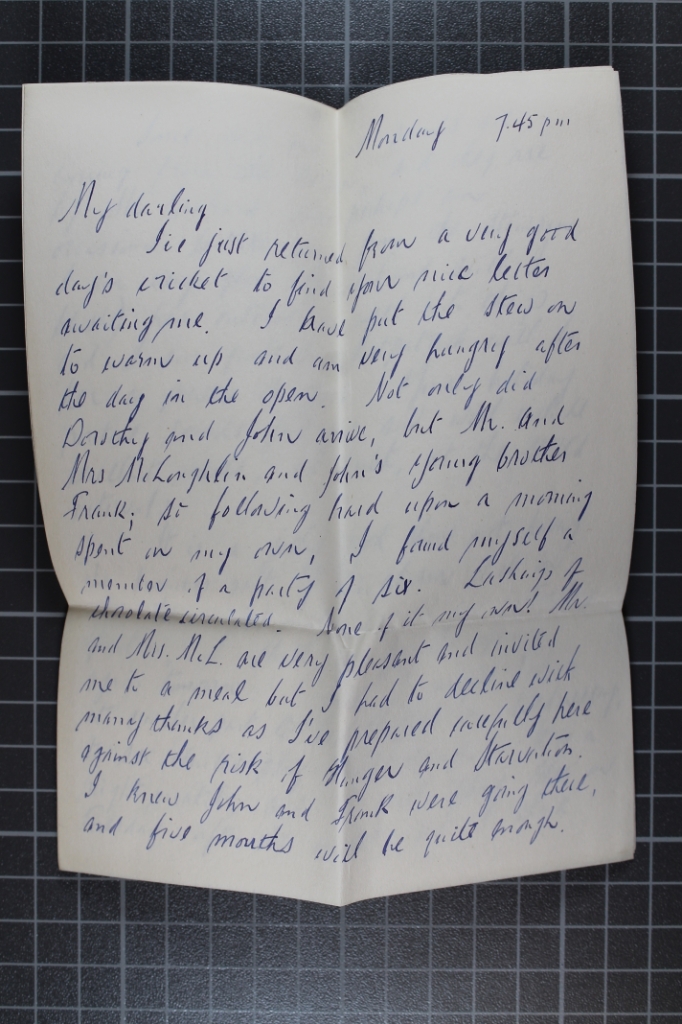 Monday 7.45 pm
My darling
I've just returned from a very good
day's cricket to find your nice letter
awaiting me. I have put the stew on
to warm up and am very hungry after
the day in the open. Not only did
Dorothy and John arrive, but Mr. and
Mrs McLoughlin and John's young brother
Frank; so following hard upon a morning
spent on my own, I found myself a
member of a party of six. Lashings of
chocolate circulated. None of it my own! Mr.
and Mrs. McL. are very pleasant and invited
me to a meal but I had to decline with
many thanks as I've prepared carefully here
against the risk of Hunger and Starvation.
I knew John and Frank were going there,
and five mouths will be quite enough.